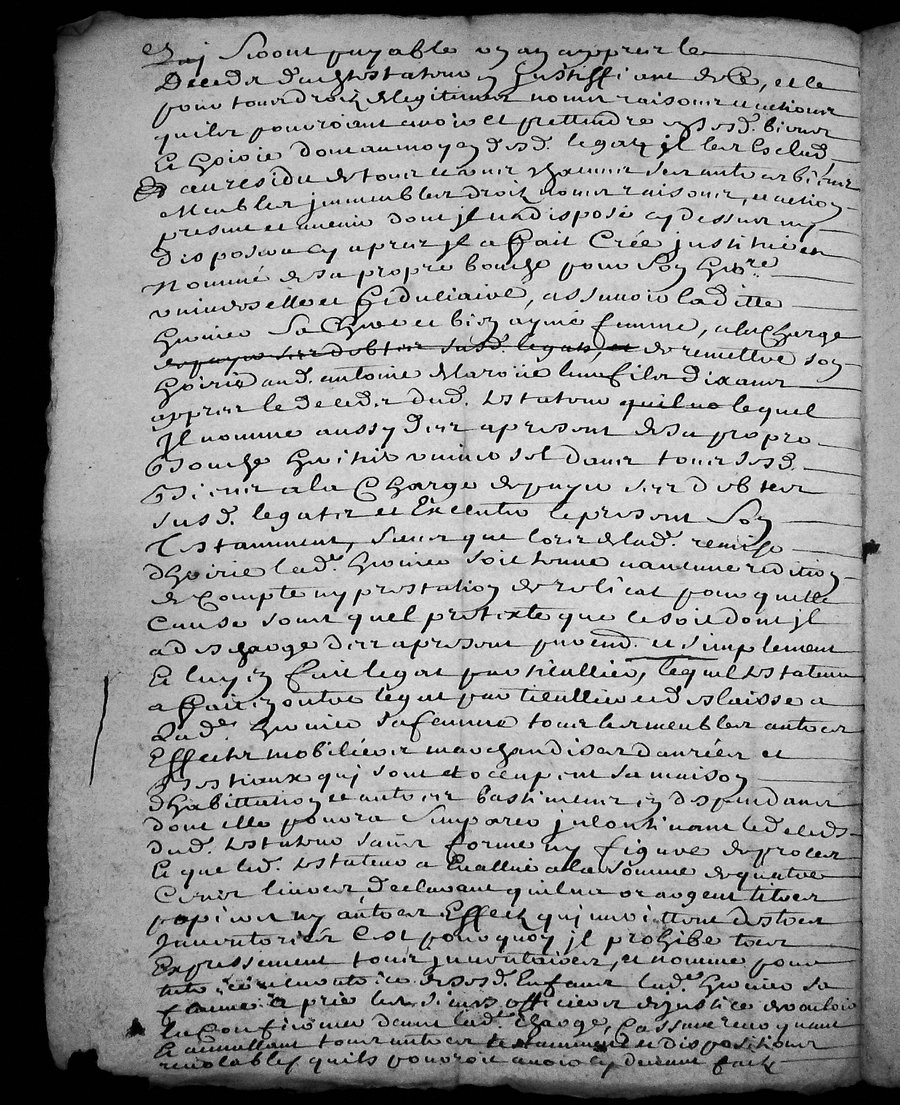 qui seront payable un an appres le
Deceds dud. testateur y Justiffiant de ce, et le
pour tous droiz de legitimes noms raisons et actions
quils pouroient avoir et prettendre en sesd. biens
Et hoirie dont au moyen desd. legatz jl les Exclud
Et au residu de tous et uns chascuns ses autres biens
Meubles jmmeubles droiz noms raisons, et actions
presens et avenir dont jl n'a disposé cy dessus ny
disposera cy apres jl a fait Créé jnstitué et
Nommé de sa propre bouche pour son here
universelle et fiduciaire, assavoir laditte
sa chere et bien aymée femme, a la charge
de payer ses debtes susd. legatz, et de remettre son
hoirie aud. antoine leur fils dix ans
appres le deceds dud. testateur quil no lequel
Jl nomme aussy des apresent de sa propre
Bouche heritier universel dans tous sesd.
Biens a la Charge de payer ses debtes
susd. legatz et Executer le present son
Testamment, sans que lors de lad. remise
dhoirie lad. soit tenue n'aucune redition
de Compte ny prestation de relicat pour quelle
Cause sous quel pretexte que ce soit dont jl
a descharge des apresent purem. et simplement
Et luy en fait legat particullier, lequel testateur
a fait en outre legat particullier et delaisse a
Lad. sa femme tous les meubles autres
Effects mobilieres marchandises danrées et
Bestiaux qui sont et occupent sa maison
dhabittation et autres bastiments en despendans
dont elle poura s'emparer jncontinant le deceds
dud. testateur sans forme ny figure de proces
Ce que led. testateur a Evallué a la somme de quatre
Cens livres declarant quil na or argent titres
papiers ny autres Effects qui meritent destres
Jnventoriés C'est pourquoy jl prohibe tres
Expressement tous jnventaires, et nomme pour
tutrice de sesd. Enfans lad. sa
femme et prie les sieurs officiers de justice de vouloir
la Confirmer dans lad. charge, Cassant revoquant
Et annullant tous autres testamment et dispositions
quils pouroit avoir cy devant faitz